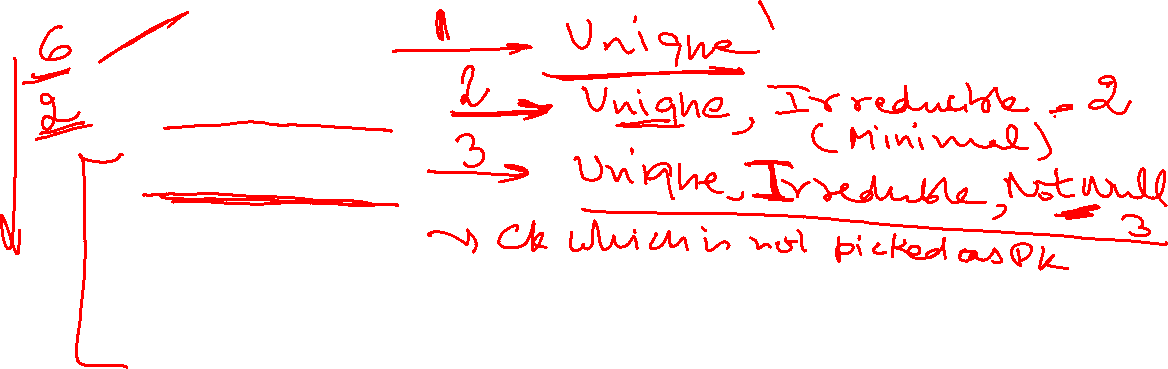 6
2
1 → Unique
2 → Unique, Irreducible - 2
(Minimal)
3 → Unique, Irreduble, Not Null
3
→ CK which is not picked as PK